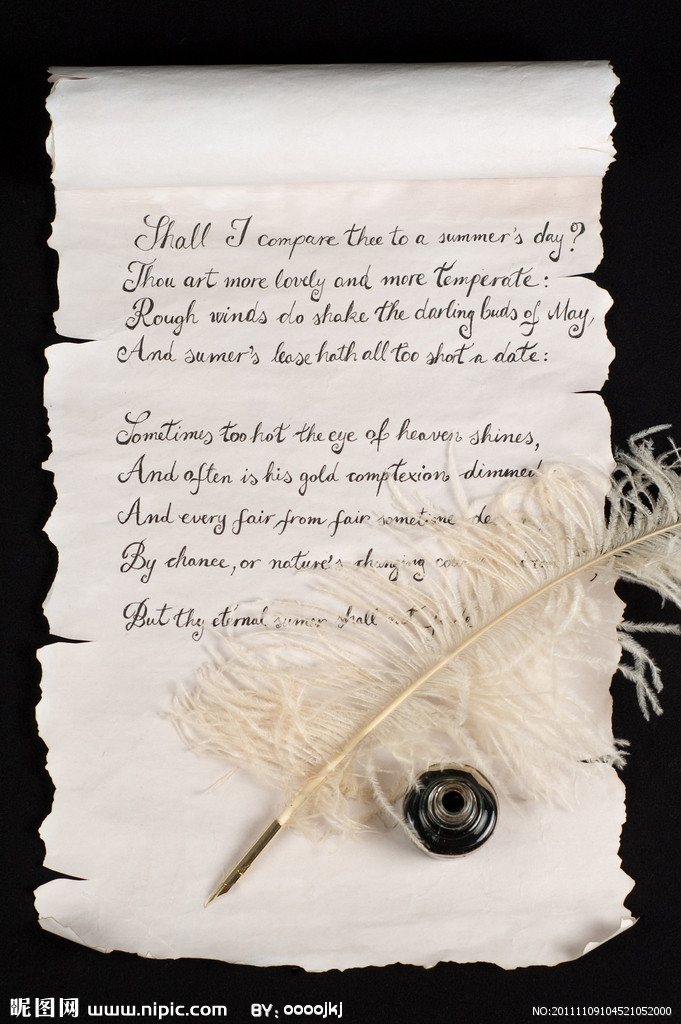 Shall I compare thee to a summer's day?
Thou art more lovely and more temperate:
Rough winds do shake the darling buds of May,
And sumer's lease hath all too shot a date:
Sometimes too hot the eye of heaven shines,
And often is his gold complexion dimmed
And every fair from fair sometime
By chance, or nature's changing
But thy eternal sumer shall not
昵图网 www.nipic.com BY: oooojkj
NO:20111109104521052000